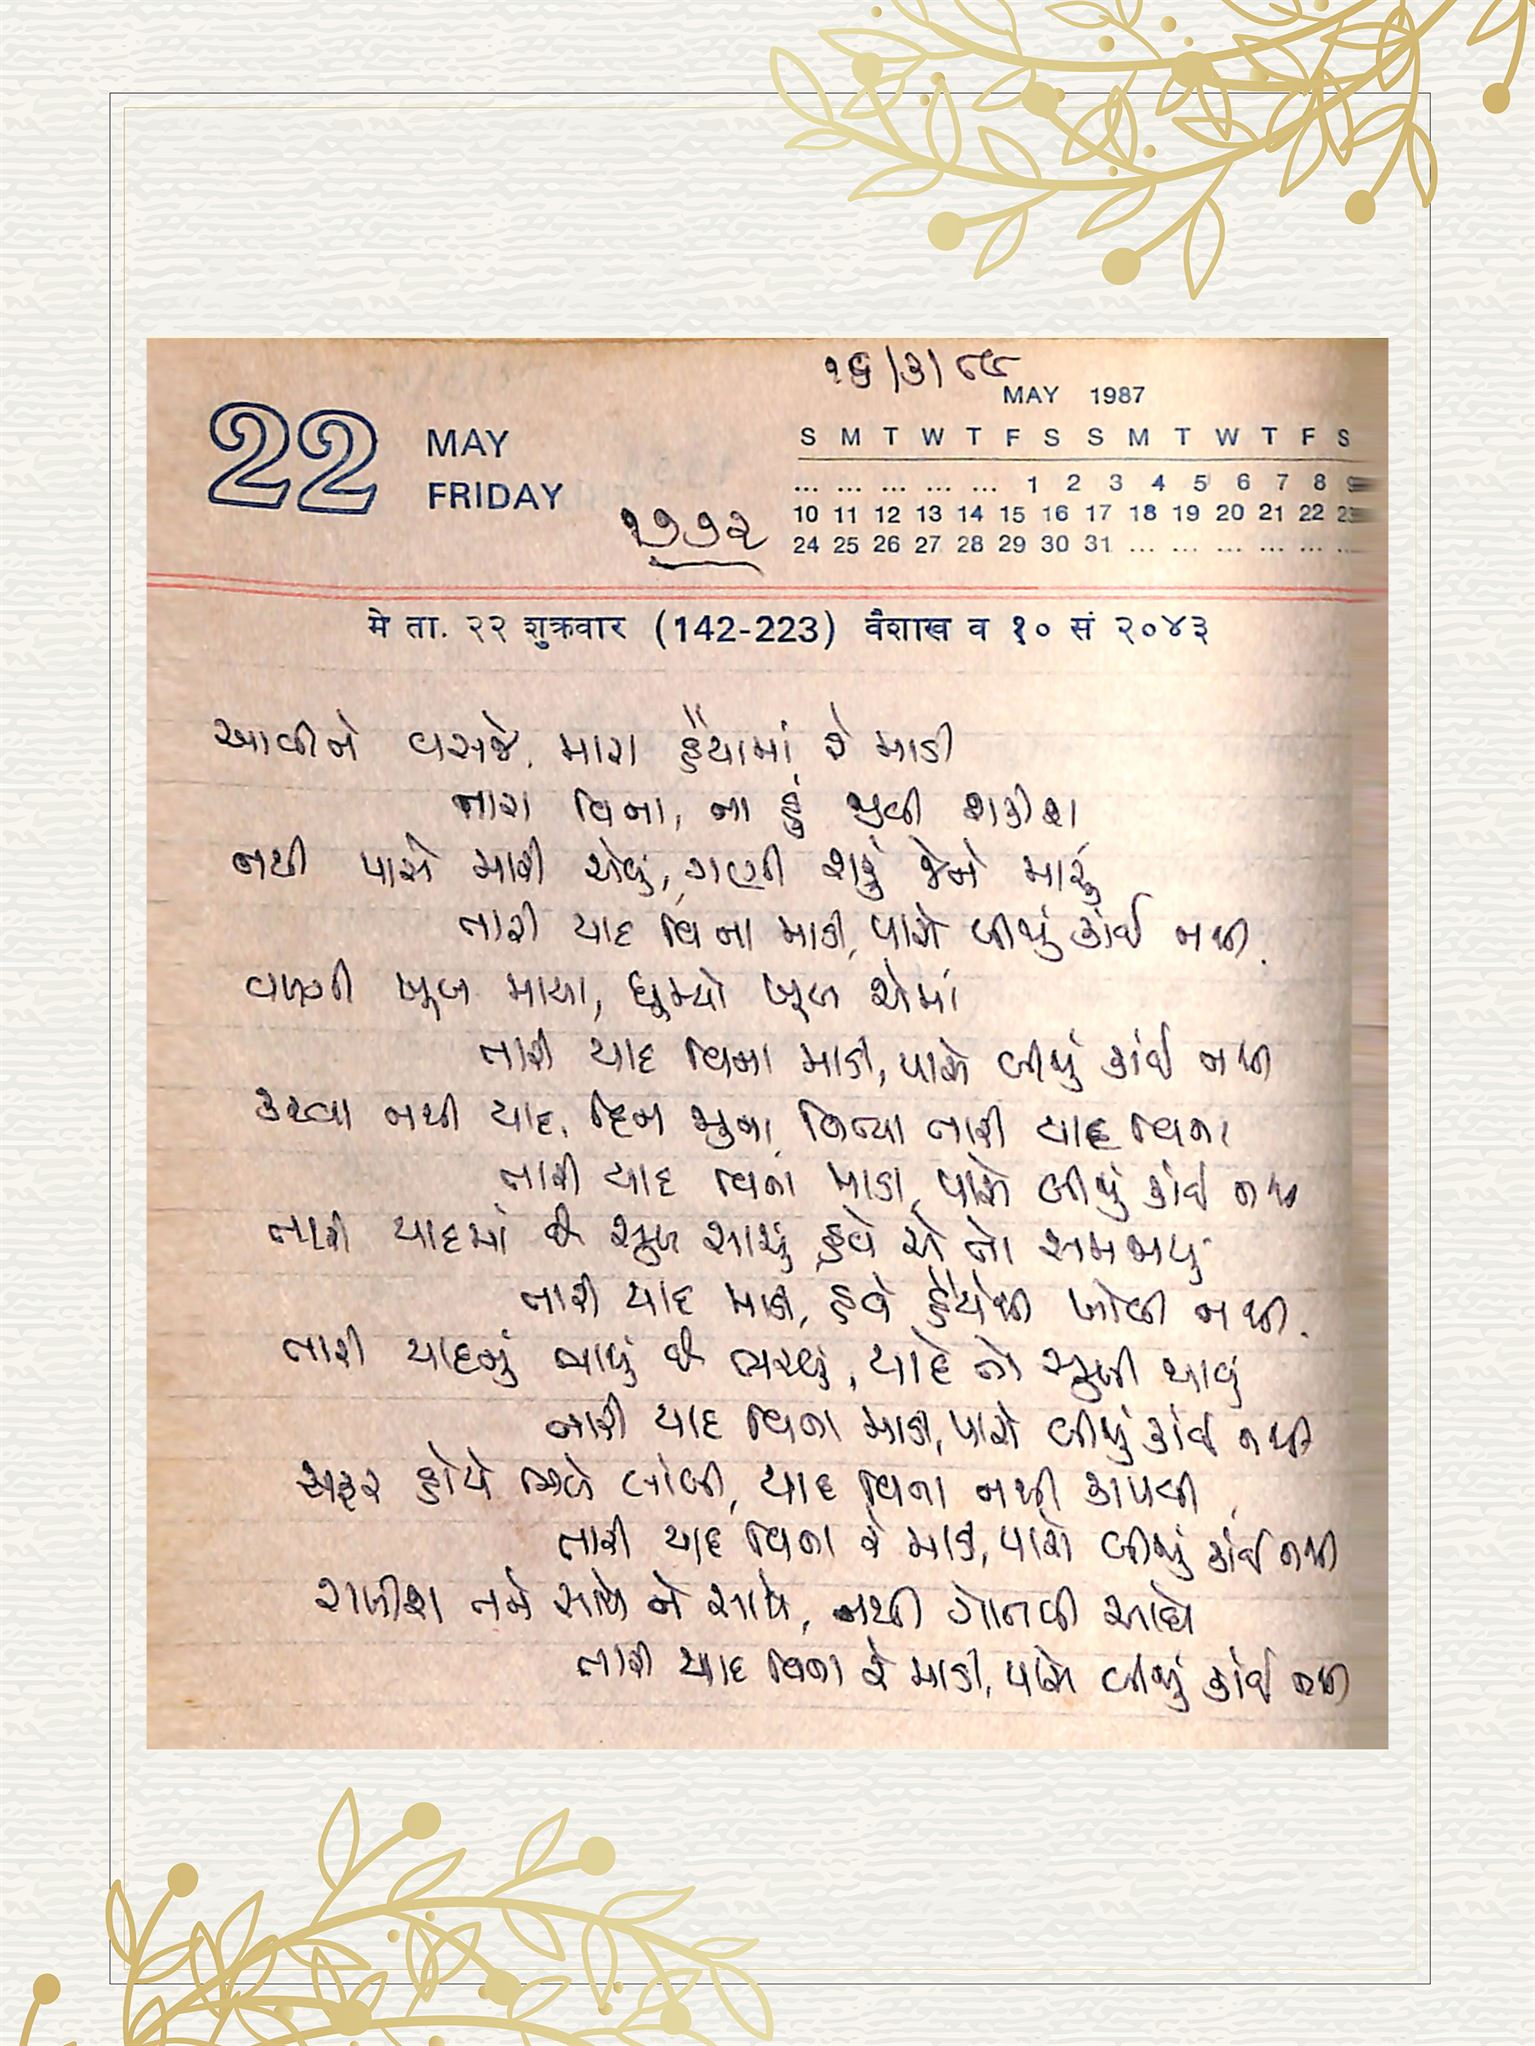 ૧૬/૩/૮૮
MAY 1987
22 MAY
FRIDAY
S M T W T F S S M T W T F S
... ... ... ... ... 1 2 3 4 5 6 7 8 9
10 11 12 13 14 15 16 17 18 19 20 21 22 23
24 25 26 27 28 29 30 31 ... ... ... ... ... ...
૧૭૭૨
मे ता. २२ शुक्रवार (142-223) वैशाख व १० सं २०४३
આવીને વસજે, મારા હૈયામાં રે માડી
તારા વિના, ના હું જીવી શકીશ
નથી પાસે મારી એવું, ગણી શકું જેને મારું
તારી યાદ વિના માડી, પાસે બીજું કાંઈ નથી.
વળગી ખૂબ માયા, ઘૂમ્યો ખૂબ એમાં
તારી યાદ વિના માડી, પાસે બીજું કાંઈ નથી
કરવા નથી યાદ, દિન જુના, વિત્યા તારી યાદ વિના
તારી યાદ વિના માડી, પાસે બીજું કાંઈ નથી
તારી યાદમાં છે સુખ સાચું, હવે એ તો સમજાયું
તારી યાદ માડી, હવે હૈયેથી ખોવી નથી.
તારી યાદનું ભાથું છે ભરવું, યાદે તો સુખી થાવું
તારી યાદ વિના માડી, પાસે બીજું કાંઈ નથી
સફર હોયે ભલે લાંબી, યાદ વિના નથી કાપવી
તારી યાદ વિના રે માડી, પાસે બીજું કાંઈ નથી
રાખીશ તને સાથે ને સાથે, નથી ગોતવી આઘે
તારી યાદ વિના રે માડી, પાસે બીજું કાંઈ નથી